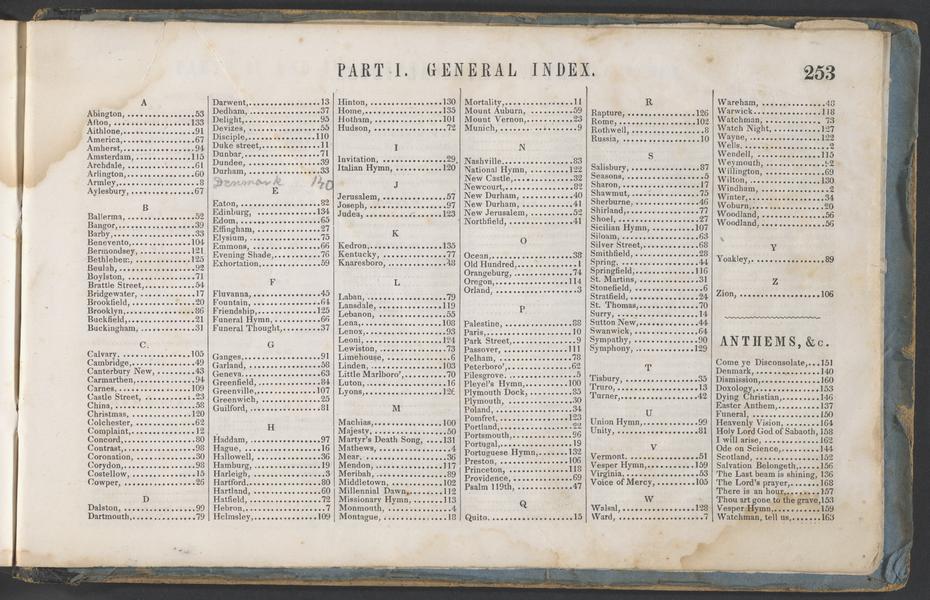 PART I. GENERAL INDEX.
253
A
Abington, 53
Afton, 133
Aithlone, 91
America, 67
Amherst, 94
Amsterdam, 115
Archdale, 61
Arlington, 60
Armley, 8
Aylesbury, 67
B
Ballerma, 52
Bangor, 39
Barby, 33
Benevento, 104
Bermondsey, 121
Bethlehem, 125
Beulah, 92
Boylston, 71
Brattle Street, 54
Bridgewater, 17
Brookfield, 20
Brooklyn, 36
Buckfield, 21
Buckingham, 31
C.
Calvary, 105
Cambridge, 49
Canterbury New, 43
Carmarthen, 94
Carnes, 109
Castle Street, 23
China, 58
Christmas, 120
Colchester, 62
Complaint, 12
Concord, 80
Contrast, 98
Coronation, 30
Corydon, 98
Costellow, 15
Cowper, 26
D
Dalston, 99
Dartmouth, 79
Darwent, 13
Dedham, 37
Delight, 95
Devizes, 55
Disciple, 110
Duke street, 11
Dunbar, 71
Dundee, 39
Durham, 33
Denmark 140
E
Eaton, 22
Edinburg, 134
Edom, 65
Effingham, 27
Elysium, 75
Emmons, 66
Evening Shade, 76
Exhortation, 59
F
Fluvanna, 45
Fountain, 64
Friendship, 125
Funeral Hymn, 66
Funeral Thought, 37
G
Ganges, 91
Garland, 58
Geneva, 63
Greenfield, 84
Greenville, 107
Greenwich, 25
Guilford, 81
H
Haddam, 97
Hague, 16
Hallowell, 36
Hamburg, 19
Harleigh, 3
Hartford, 80
Hartland, 60
Hatfield, 72
Hebron, 7
Helmsley, 109
Hinton, 130
Home, 135
Hotham, 101
Hudson, 72
I
Invitation, 29
Italian Hymn, 120
J
Jerusalem, 57
Joseph, 97
Judea, 123
K
Kedron, 135
Kentucky, 77
Knaresboro, 48
L
Laban, 79
Lansdale, 119
Lebanon, 55
Lena, 108
Lenox, 93
Leoni, 124
Lewiston, 73
Limehouse, 6
Linden, 103
Little Marlboro', 70
Luton, 16
Lyons, 126
M
Machias, 100
Majesty, 50
Martyr's Death Song, 131
Mathews, 4
Mear, 36
Mendon, 117
Meribah, 89
Middletown, 102
Millennial Dawn, 112
Missionary Hymn, 113
Monmouth, 4
Montague, 18
Mortality, 11
Mount Auburn, 59
Mount Vernon, 23
Munich, 9
N
Nashville, 83
National Hymn, 122
New Castle, 32
Newcourt, 82
New Durham, 40
New Durham, 41
New Jerusalem, 52
Northfield, 41
O
Ocean, 38
Old Hundred, 1
Orangeburg, 74
Oregon, 114
Orland, 3
P
Palestine, 88
Paris, 10
Park Street, 9
Passover, 111
Pelham, 78
Peterboro', 62
Pilesgrove, 5
Pleyel's Hymn, 100
Plymouth Dock, 85
Plymouth, 30
Poland, 34
Pomfret, 123
Portland, 22
Portsmouth, 96
Portugal, 19
Portuguese Hymn, 132
Preston, 106
Princeton, 118
Providence, 69
Psalm 119th, 47
Q
Quito, 15
R
Rapture, 126
Rome, 102
Rothwell, 8
Russia, 10
S
Salisbury, 87
Seasons, 5
Sharon, 17
Shawmut, 75
Sherburne, 46
Shirland, 77
Shoel, 27
Sicilian Hymn, 107
Siloam, 63
Silver Street, 68
Smithfield, 28
Spring, 44
Springfield, 116
St. Martins, 31
Stonefield, 6
Stratfield, 24
St. Thomas, 70
Surry, 14
Sutton New, 44
Swanwick, 64
Sympathy, 90
Symphony, 129
T
Tisbury, 35
Truro, 13
Turner, 42
U
Union Hymn, 99
Unity, 81
V
Vermont, 51
Vesper Hymn, 159
Virginia, 53
Voice of Mercy, 105
W
Walsal, 128
Ward, 7
Wareham, 48
Warwick, 118
Watchman, 73
Watch Night, 127
Wayne, 122
Wells, 2
Wendell, 115
Weymouth, 2
Willington, 69
Wilton, 130
Windham, 2
Winter, 34
Woburn, 20
Woodland, 56
Woodland, 56
Y
Yoakley, 89
Z
Zion, 106
ANTHEMS, &c.
Come ye Disconsolate, 151
Denmark, 140
Dismission, 160
Doxology, 153
Dying Christian, 146
Easter Anthem, 137
Funeral, 150
Heavenly Vision, 164
Holy Lord God of Sabaoth, 158
I will arise, 162
Ode on Science, 144
Scotland, 152
Salvation Belongeth, 156
The Last beam is shining, 136
The Lord's prayer, 168
There is an hour, 157
Thou art gone to the grave, 153
Vesper Hymn, 159
Watchman, tell us, 163